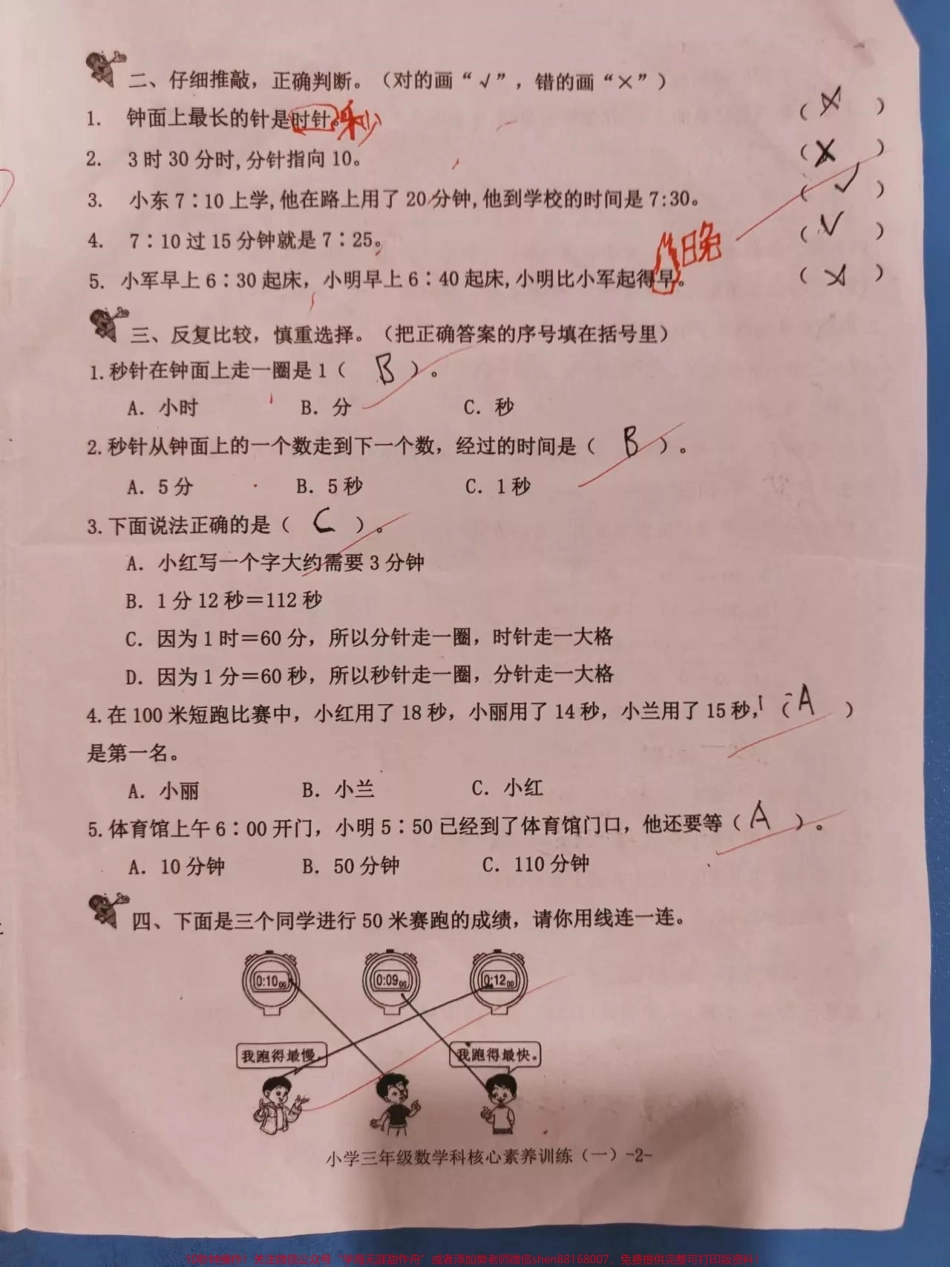 二、仔细推敲，正确判断。（对的画“√”，错的画“×”）
1. 钟面上最长的针是时针。秒 （×）
2. 3时30分时，分针指向10。 （×）
3. 小东7∶10上学，他在路上用了20分钟，他到学校的时间是7:30。 （√）
4. 7∶10过15分钟就是7∶25。 （√）
5. 小军早上6∶30起床，小明早上6∶40起床，小明比小军起得早。晚 （×）
三、反复比较，慎重选择。（把正确答案的序号填在括号里）
1.秒针在钟面上走一圈是1（ B ）。
A. 小时 B. 分 C. 秒
2.秒针从钟面上的一个数走到下一个数，经过的时间是（ B ）。
A. 5分 B. 5秒 C. 1秒
3.下面说法正确的是（ C ）。
A. 小红写一个字大约需要3分钟
B. 1分12秒＝112秒
C. 因为1时＝60分，所以分针走一圈，时针走一大格
D. 因为1分＝60秒，所以秒针走一圈，分针走一大格
4.在100米短跑比赛中，小红用了18秒，小丽用了14秒，小兰用了15秒，（ A ）
是第一名。
A. 小丽 B. 小兰 C. 小红
5.体育馆上午6∶00开门，小明5∶50已经到了体育馆门口，他还要等（ A ）。
A. 10分钟 B. 50分钟 C. 110分钟
四、下面是三个同学进行50米赛跑的成绩，请你用线连一连。
0:10 00 0:09 00 0:12 00
我跑得最慢。 我跑得最快。
小学三年级数学科核心素养训练（一）-2-